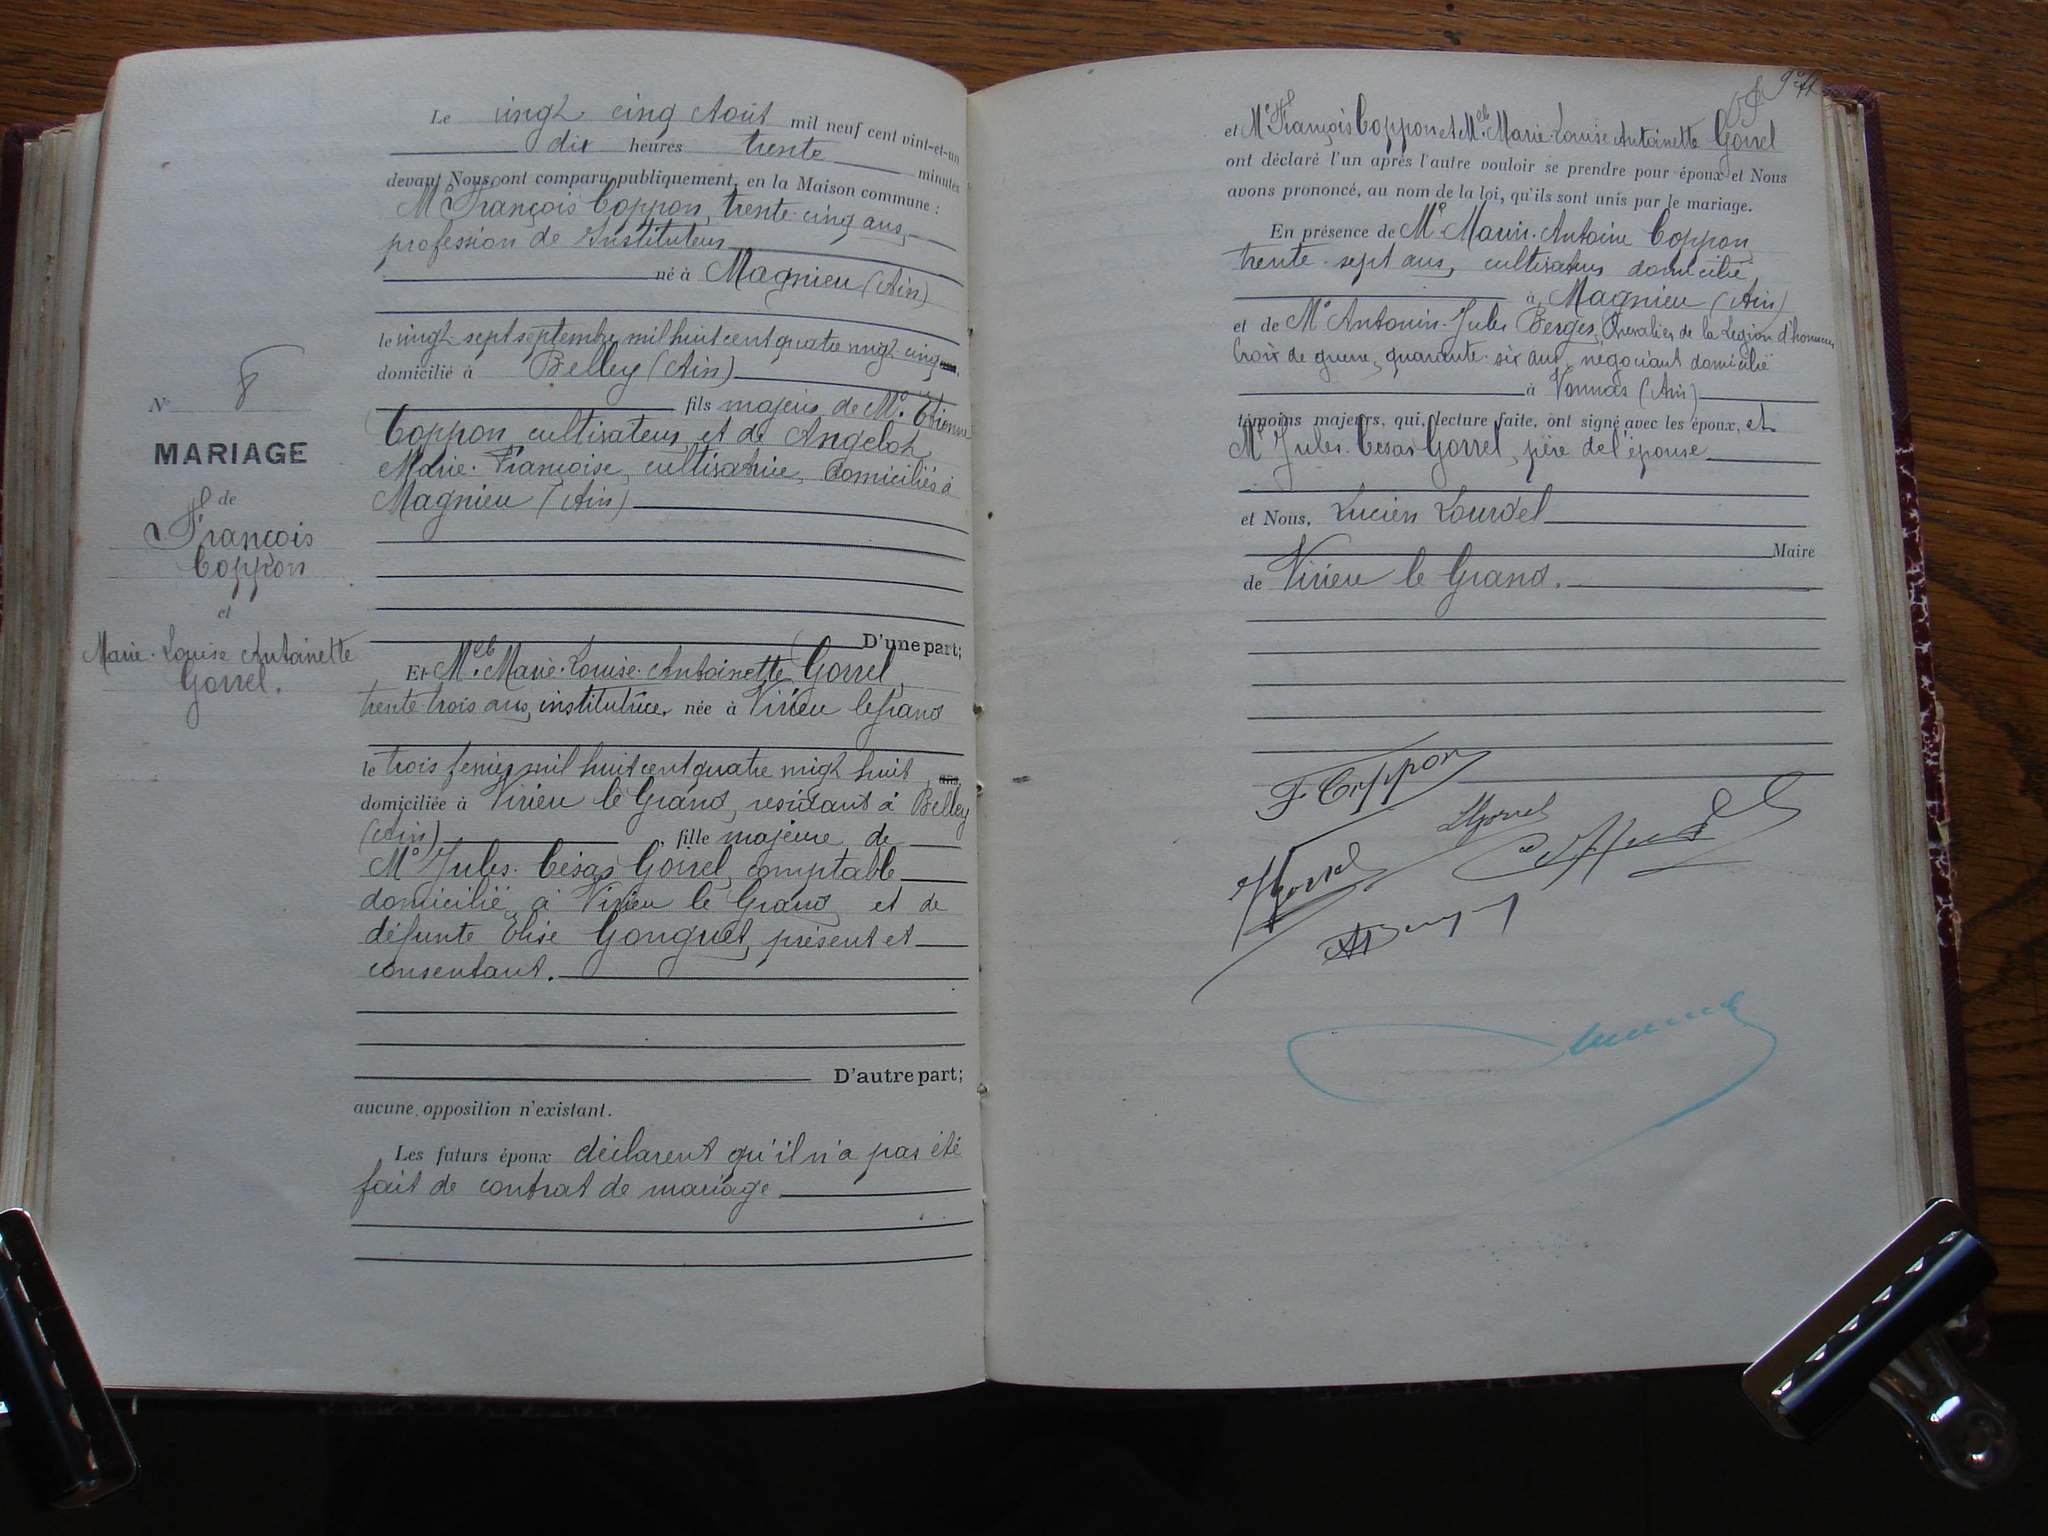 Nº 8
MARIAGE
de
François
Coppon
et
Marie-Louise Antoinette
Gorrel.
Le vingt cinq Août mil neuf cent vint-et-un
dix heures trente minutes
devant Nous, ont comparu publiquement, en la Maison commune :
Mr François Coppon, trente-cinq ans,
profession de Instituteur
né à Magnieu (Ain)
le vingt-sept septembre mil huit cent quatre vingt-cinq
domicilié à Belley (Ain)
fils majeur de Mr. Etienne
Coppon, cultivateur, et de Angelot
Marie-Françoise, cultivatrice, domiciliés à
Magnieu (Ain)
D'une part;
Et Melle Marie-Louise-Antoinette Gorrel,
trente-trois ans, institutrice, née à Virieu le Grand
le trois février mil huit cent quatre vingt huit
domiciliée à Virieu le Grand, résidant à Belley
(Ain), fille majeure de
Mr Jules-César Gorrel, comptable
domicilié à Virieu le Grand et de
défunte Elise Gonguet, présent et
consentant.
D'autre part;
aucune opposition n'existant.
Les futurs époux déclarent qu'il n'a pas été
fait de contrat de mariage
et Mr François Coppon et Melle Marie-Louise Antoinette Gorrel
ont déclaré l'un après l'autre vouloir se prendre pour époux et Nous
avons prononcé, au nom de la loi, qu'ils sont unis par le mariage.
En présence de Mr Marin-Antoine Coppon,
trente-sept ans, cultivateur domicilié
à Magnieu (Ain)
et de Mr Antonin-Jules Berger, Chevalier de la Légion d'honneur,
Croix de guerre, quarante-six ans, négociant domicilié
à Vonnas (Ain)
témoins majeurs, qui, lecture faite, ont signé avec les époux, et
Mr Jules-César Gorrel, père de l'épouse
et Nous, Lucien Lourdel
Maire
de Virieu le Grand.
F Coppon
Gorrel
Gorrel